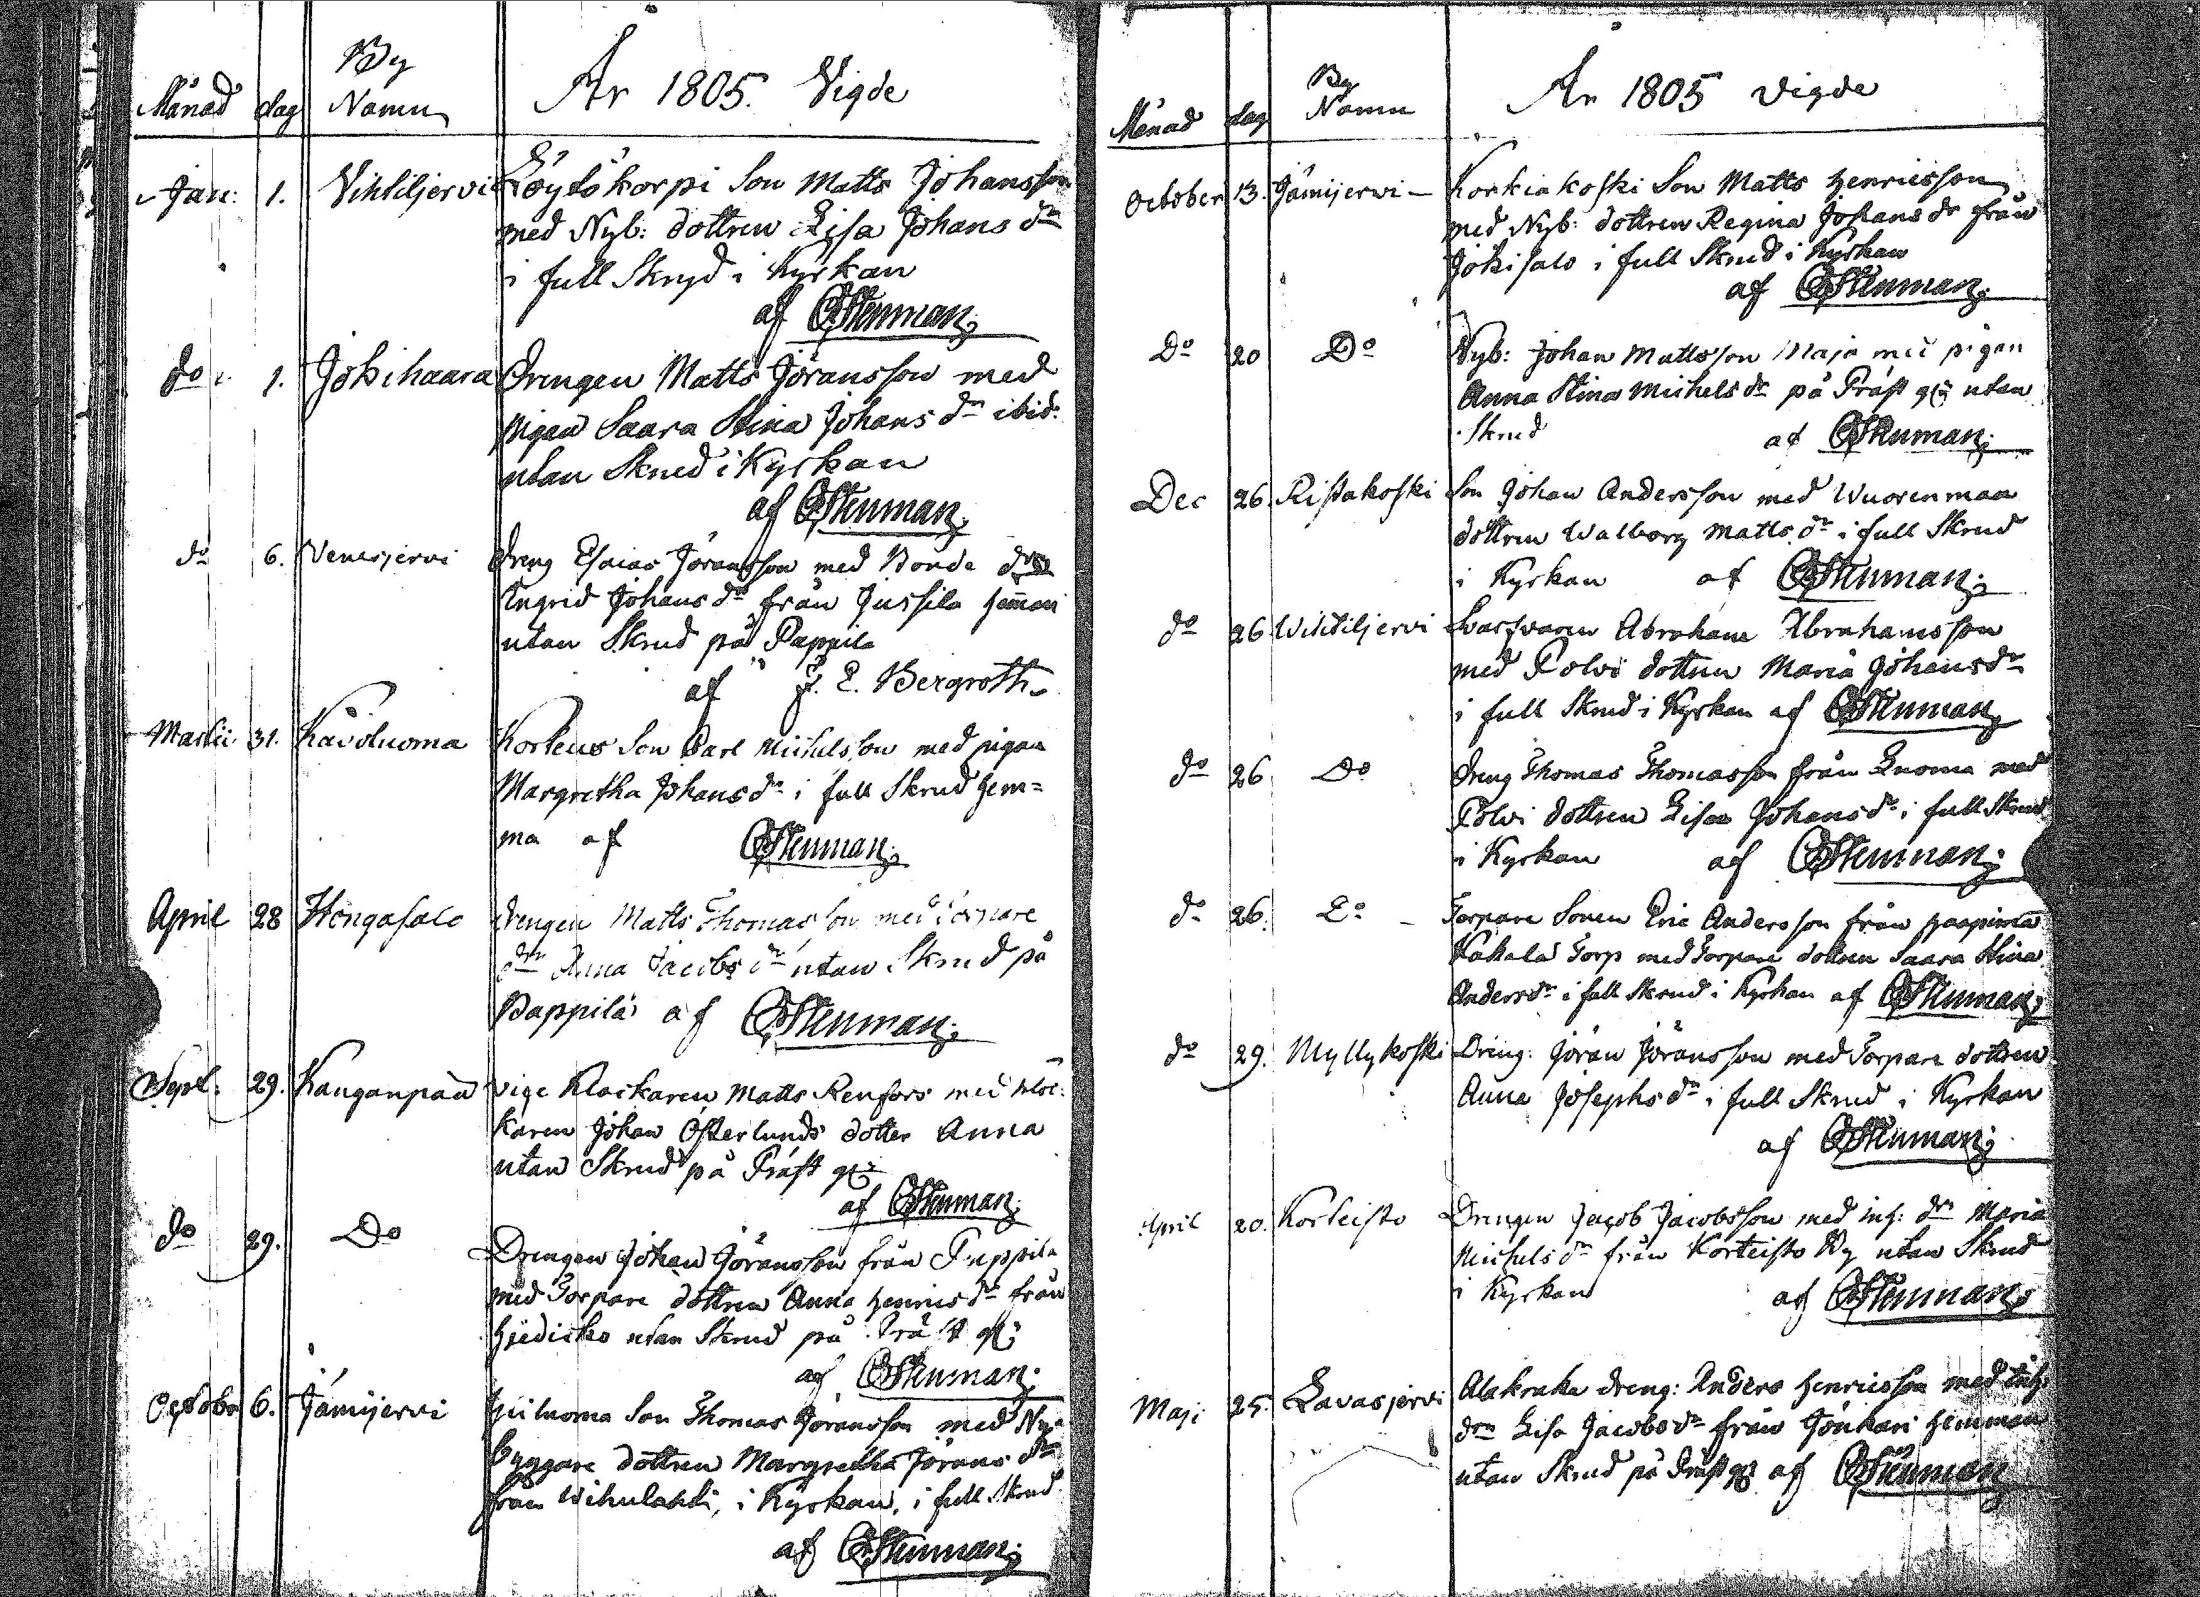 Månad dag By Namn År 1805. Vigde
Jan: 1. Vihtiljervi Löytökorpi Son Matts Johansson
med Nyb: dottren Lisa Johans dr
i full Skryd i Kyrkan
af CStenman
do 1. Jokihaara Drengen Matts Jöransson med
pigan Saara Stina Johans dr ibid:
utan Skrud i Kyrkan
af CStenman
do 6. Venesjervi dreng Esaias Jöransson med Bonde
Ingrid Johans dr från Jussila hemman
utan Skrud på Pappila
af J. E. Bergroth
Martii 31. Korteus Son Carl Michelsson med pigan
Margretha Johans dr i full Skrud hem=
ma af CStenman
April 28 Hongasalo drengen Matts Thomasson med torpare
drn Anna Jacobs dr utan Skrud på
Pappila af CStenman
Sept. 29. Kanganpää vice Klockaren Matts Renfors med kloc:
karen Johan Österlunds dotter Anna
utan Skrud på Präst g:
af CStenman
do 29. Do Drengen Johan Jöransson från Pappila
med Torpare dottren Anna Henrics dr från
utan Skrud på Präst g:
af CStenman
October 6. Jämijervi Son Thomas Jöransson med Ny
byggare dottren Margretha Jörans dr
från Wihulahti, i Kyrkan, i full Skrud
af CStenman
Månad dag By Namn År 1805 Vigde
October 13. Jämijervi Korkiakoski Son Matts Henricsson
med Nyb: dottren Regina Johans dr från
Jokisalo i full Skrud i Kyrkan
af CStenman
Do 20 Do Nyb: Johan Mattsson Maja med pigan
Anna Stina Michels dr på Präst g: utan
Skrud af CStenman
Dec 26. Ristakoski Son Johan Andersson med Wuorenmaa
dottren Walborg Matts dr i full Skrud
i Kyrkan af CStenman
do 26 Wihtiljervi Abraham Abrahamsson
med Polvi dottren Maria Johans dr
i full Skrud i Kyrkan af CStenman
do 26 Do dreng Thomas Thomasson från Luoma med
Polvi dottren Lisa Johans dr i full Skrud
i Kyrkan af CStenman
do 26. Torpare Sonen Eric Andersson från
Kakala Torp med Torpare dottren Saara Stina
Anders dr i full Skrud i Kyrkan af CStenman
do 29. Myllykoski Dreng: Jöran Jöransson med Torpare dottren
Anna Josephs dr i full Skrud i Kyrkan
af CStenman
April 20. Korteisto Drengen Jacob Jacobsson med inh: drn Maria
Michels dr från Korteisto By utan Skrud
i Kyrkan af CStenman
Maji 25. Lavasjervi Alakraka dreng: Anders Henricsson med inh:
drn Lisa Jacobs dr från hemman
utan Skrud på Präst g: af CStenman